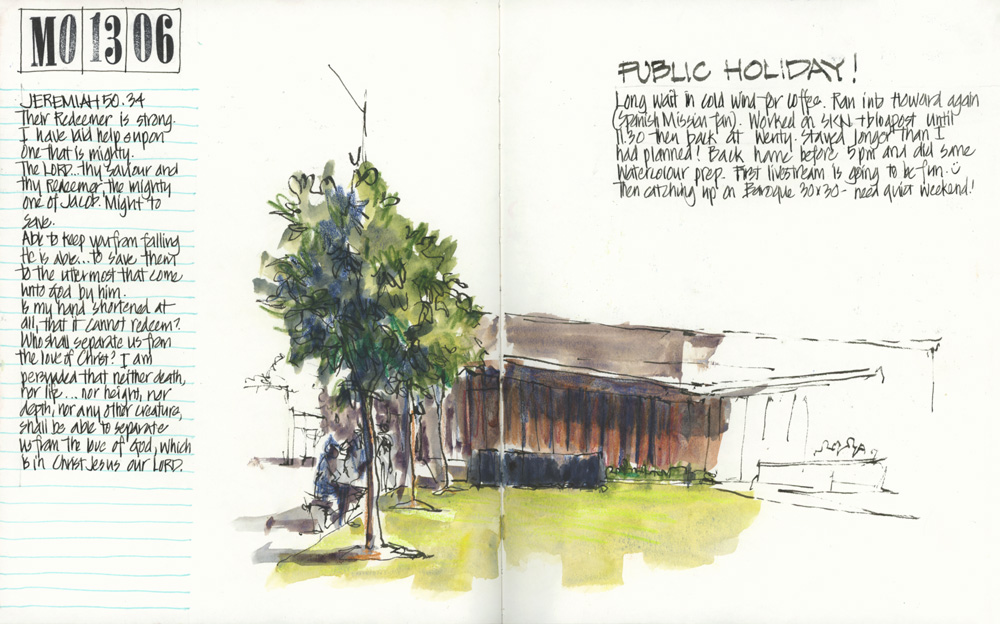 MO 13 06
JEREMIAH 50.34
Their Redeemer is strong.
I have laid help upon
one that is mighty.
The LORD...thy saviour and
thy Redeemer, the mighty
one of Jacob. Might to
save.
Able to keep you from falling
He is able...to save them
to the uttermost that come
unto God by him.
Is my hand shortened at
all, that it cannot redeem?
Who shall separate us from
the love of Christ? I am
persuaded that neither death,
nor life... nor height, nor
depth, nor any other creature,
shall be able to separate
us from the love of God, which
is in Christ Jesus our LORD.
PUBLIC HOLIDAY!
Long wait in cold wind for coffee. Ran into Howard again
(Spanish Mission fan). Worked on SKN + blogpost until
11.30 then back at Wenty. Stayed longer than I
had planned! Back home before 5pm and did some
Watercolour prep. First livestream is going to be fun. ☺
Then catching up on Baroque 30x30 - need quiet weekend!